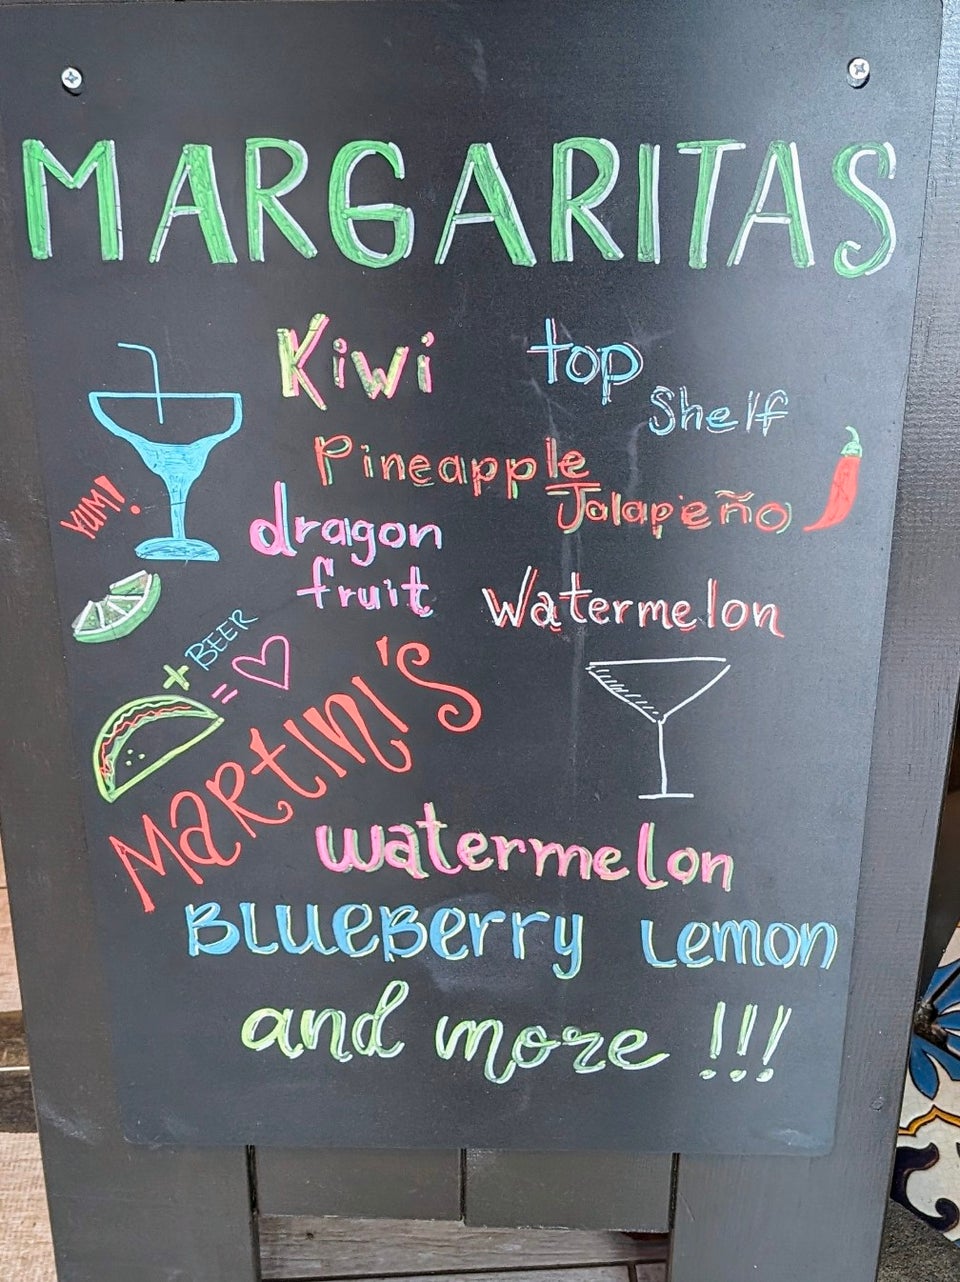 MARGARITAS
Kiwi
top
Shelf
Pineapple
Jalapeño
YUM!
dragon
fruit
Watermelon
+ BEER
= ♡
MaRtINI'S
watermelon
BLUeBerry Lemon
and more !!!